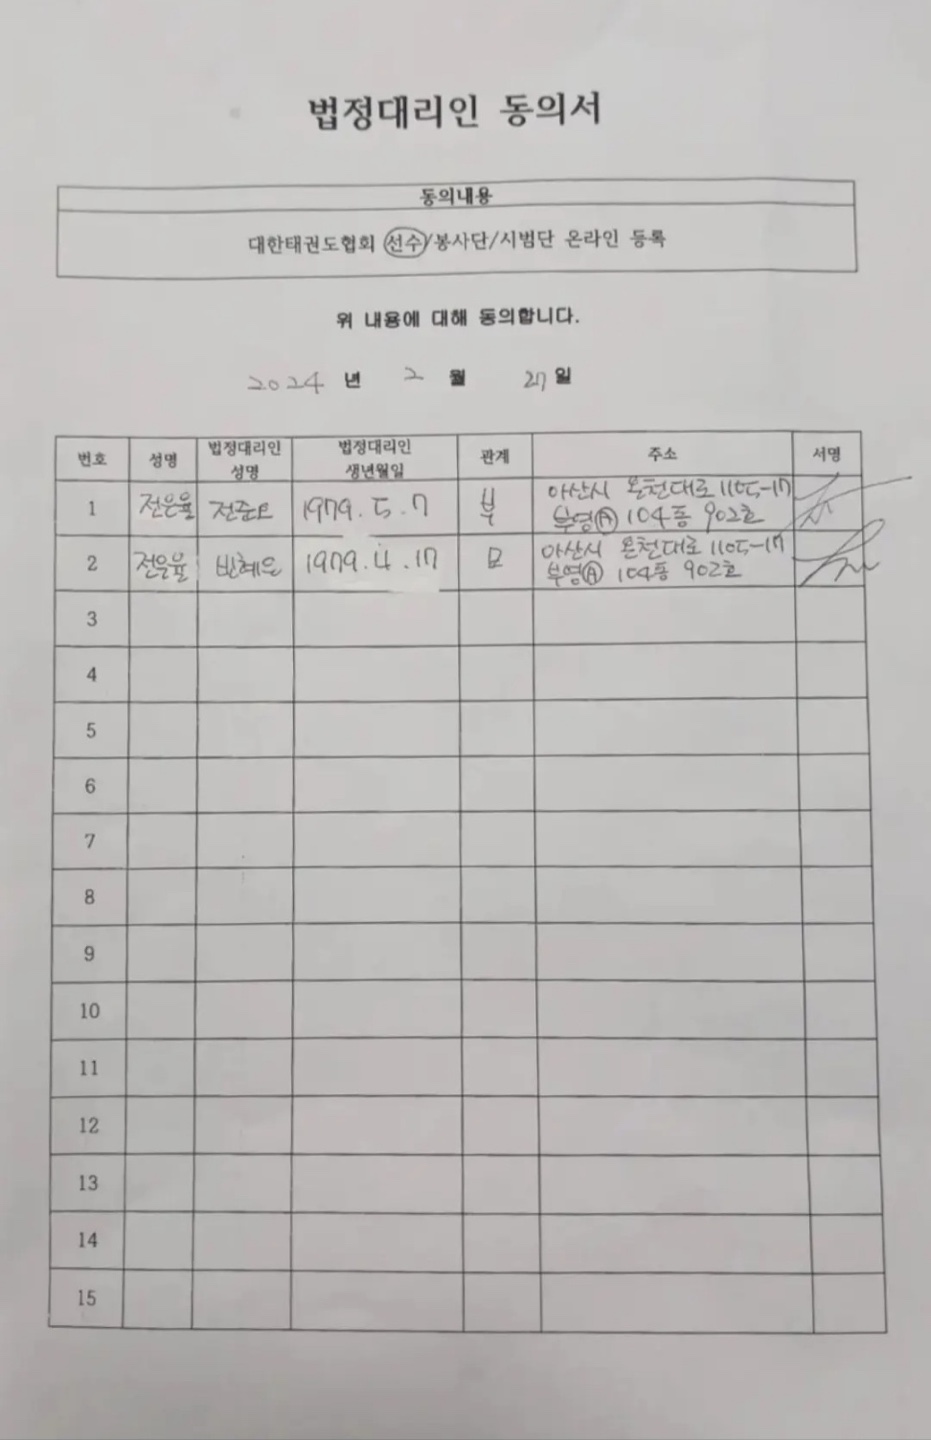 법정대리인 동의서
동의내용
대한태권도협회 선수/봉사단/시범단 온라인 등록
위 내용에 대해 동의합니다.
2024 년 2 월 27 일
번호 성명 법정대리인 성명 법정대리인 생년월일 관계 주소 서명
1 전은율 1979. 5. 7 부 아산시 온천대로 1105-17
부영Ⓐ 104동 902호
2 전은율 빈혜은 1979. 4. 17 모 아산시 온천대로 1105-17
부영Ⓐ 104동 902호
3
4
5
6
7
8
9
10
11
12
13
14
15